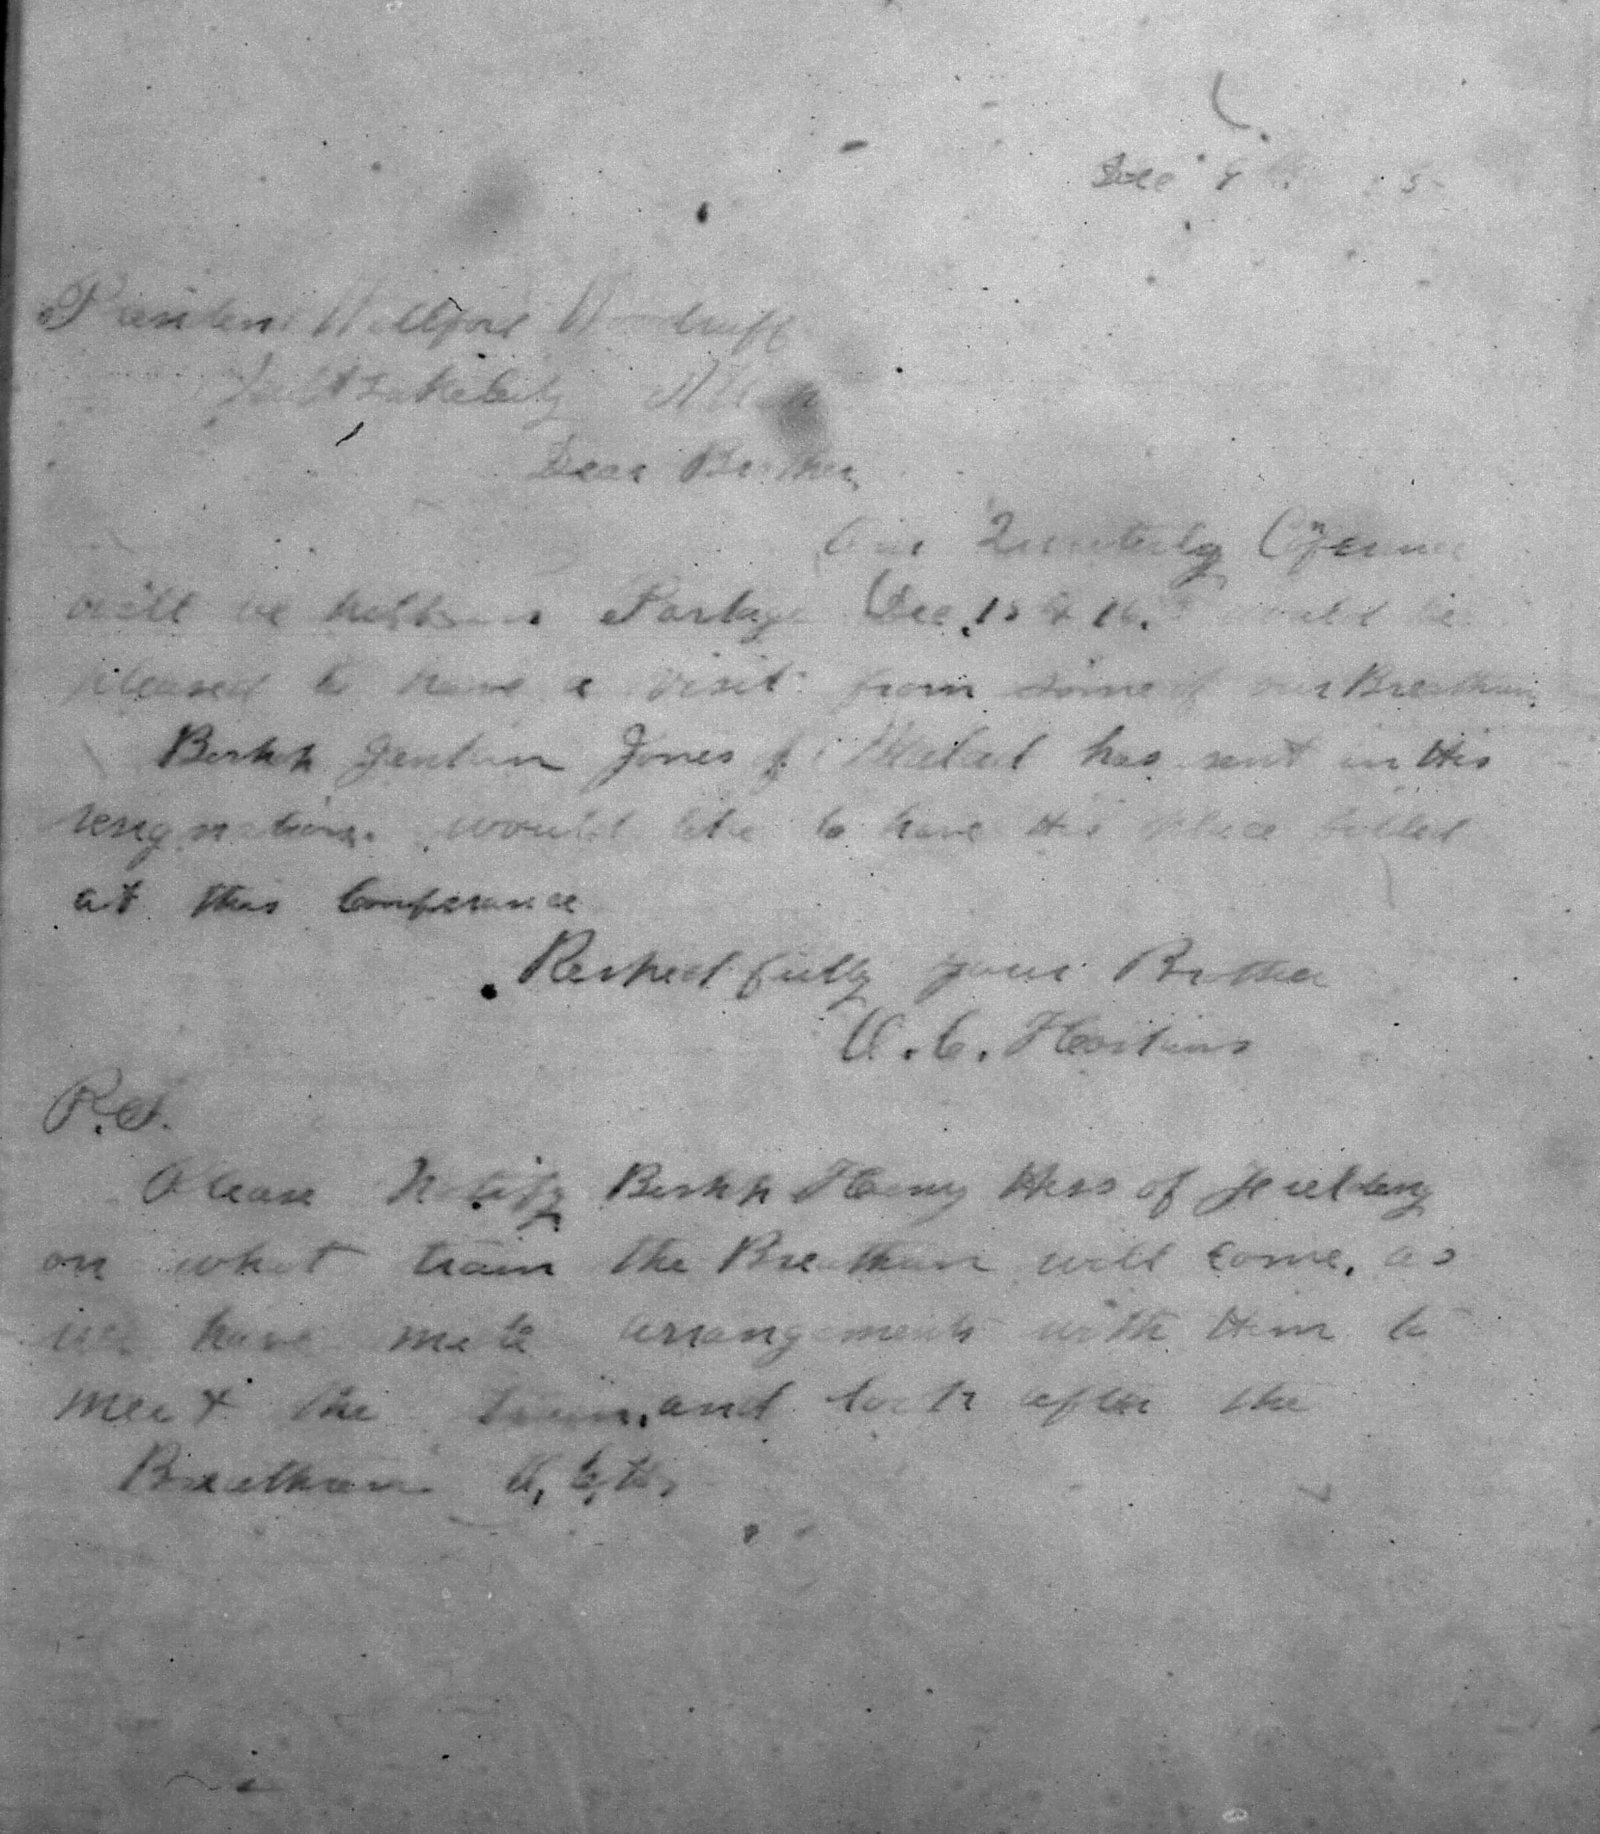 Dec 9
President Wilford Woodruff
Salt Lake City Utah
Dear Brother
Our Quarterly Conference
will be held Portage Dec. 15 & 16. would be
pleased to have a visit from some of our Breathern
Bishp Jenken Jones of Malad has sent in His
resignation. would like to have His place filled
at this Conferance
Respectfully your Brother
O. C. Hoskins
P.S.
Please Notify Bishp Henry Hess of
on what train the Breathern will come. as
we have made arrangements with Him to
meet the train, and look after the
Breathern O. C. H.